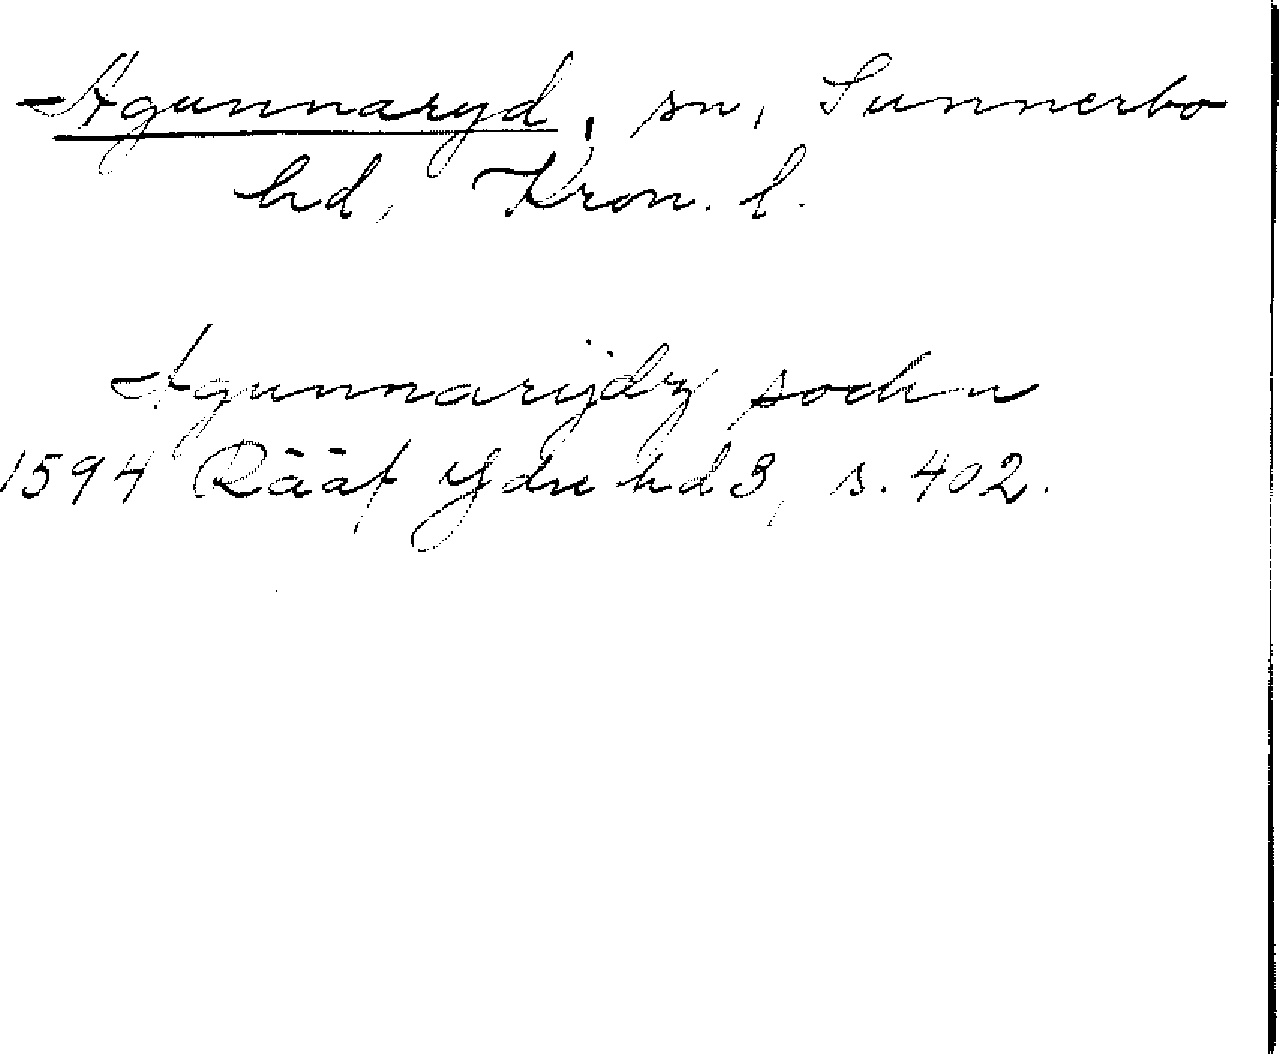 Agunnaryd, sn, Sunnerbo
hd, Kron. l.
Agunnarijdz sochn
1594 Rääf Ydre hd 3, s. 402.